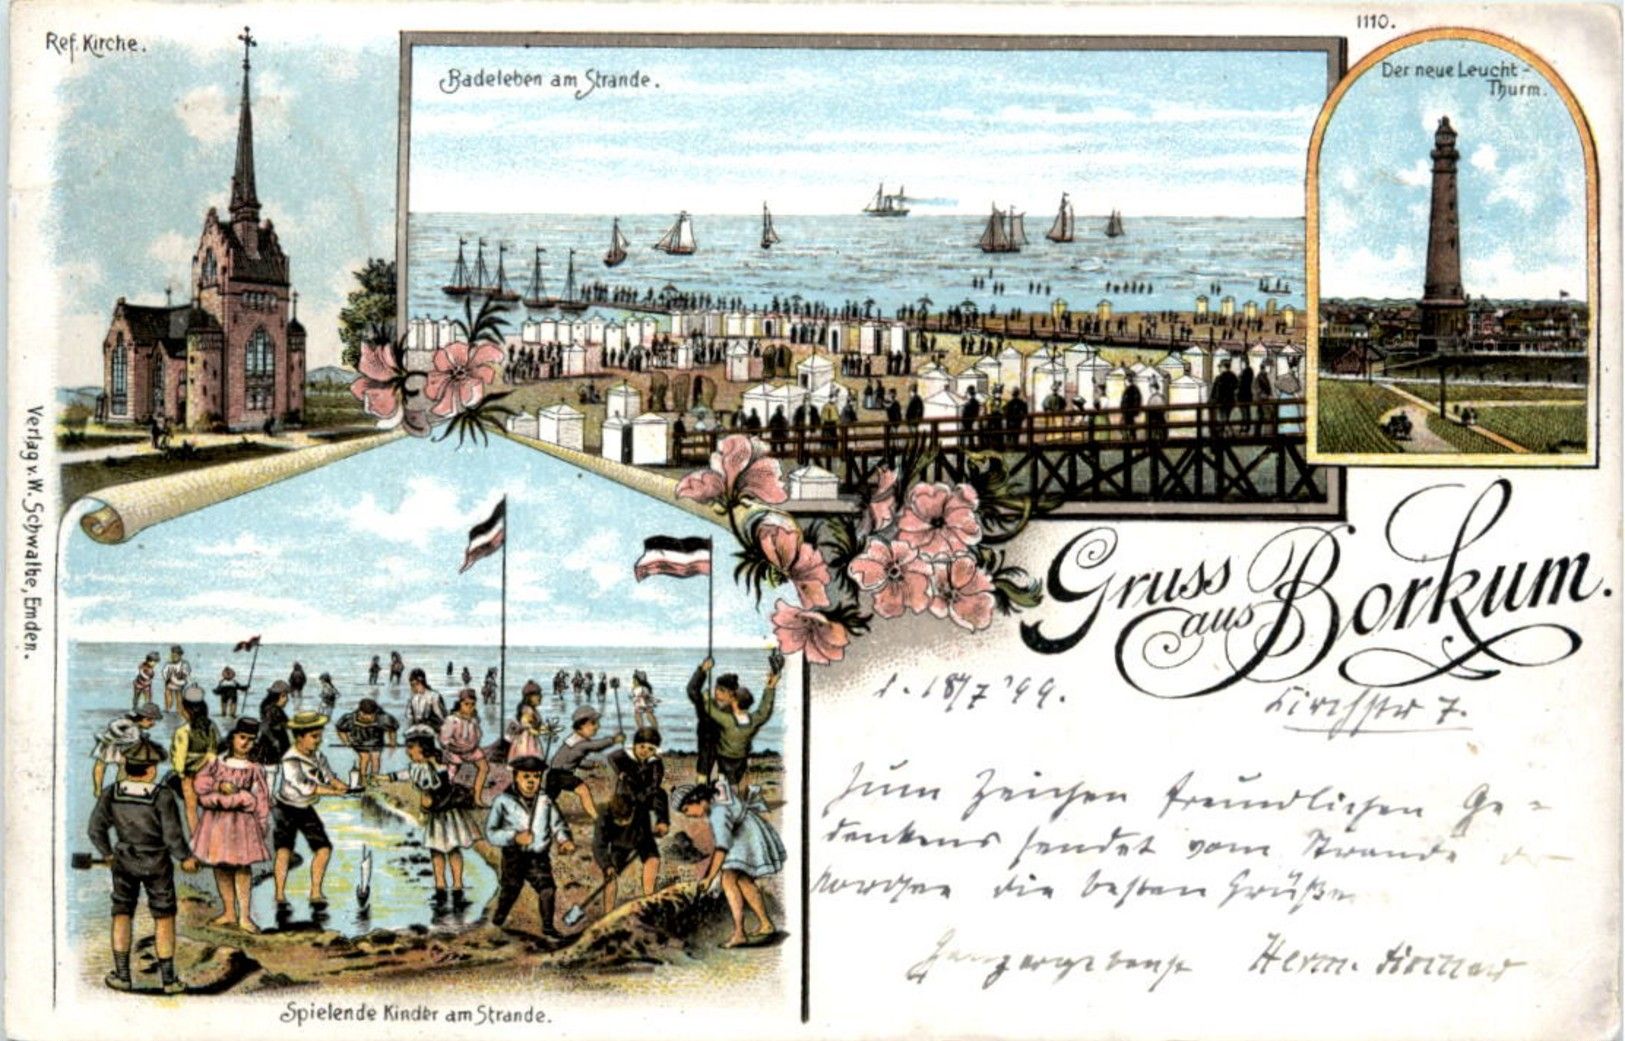 Ref. Kirche.
Badeleben am Strande.
1110.
Der neue Leucht-
Thurm.
Verlag v. W. Schwalbe, Emden.
Gruss
aus Borkum.
d. 18/7 '99.
Kirchstr 7.
Zum Zeichen freundlichen Ge-
denkens sendet vom Strande der
Nordsee die besten Grüße
Ganzergebenst Herm.
Spielende Kinder am Strande.